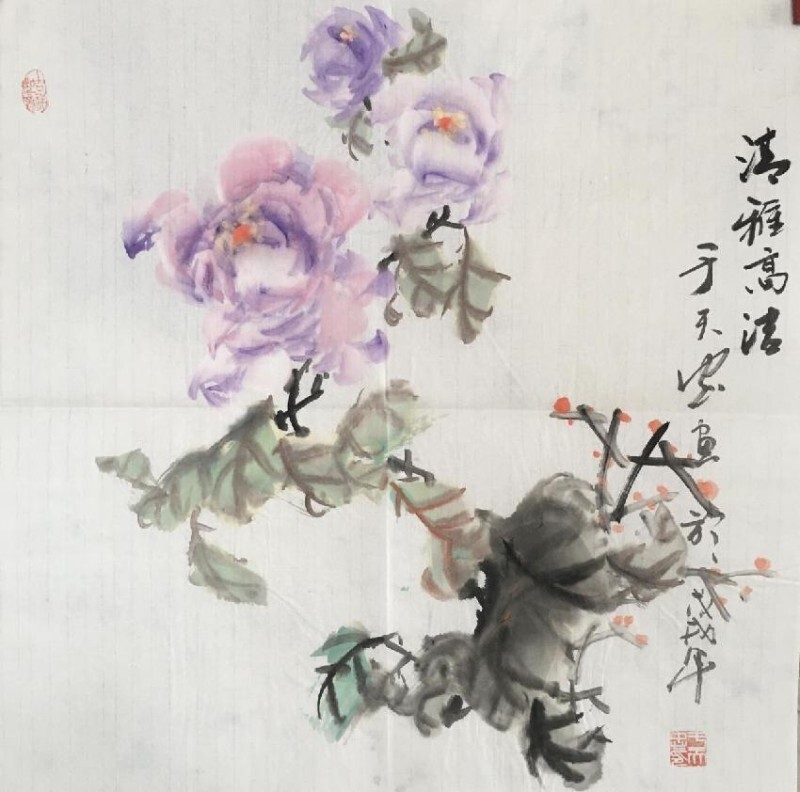 清雅高洁
于天 画於戊戌年